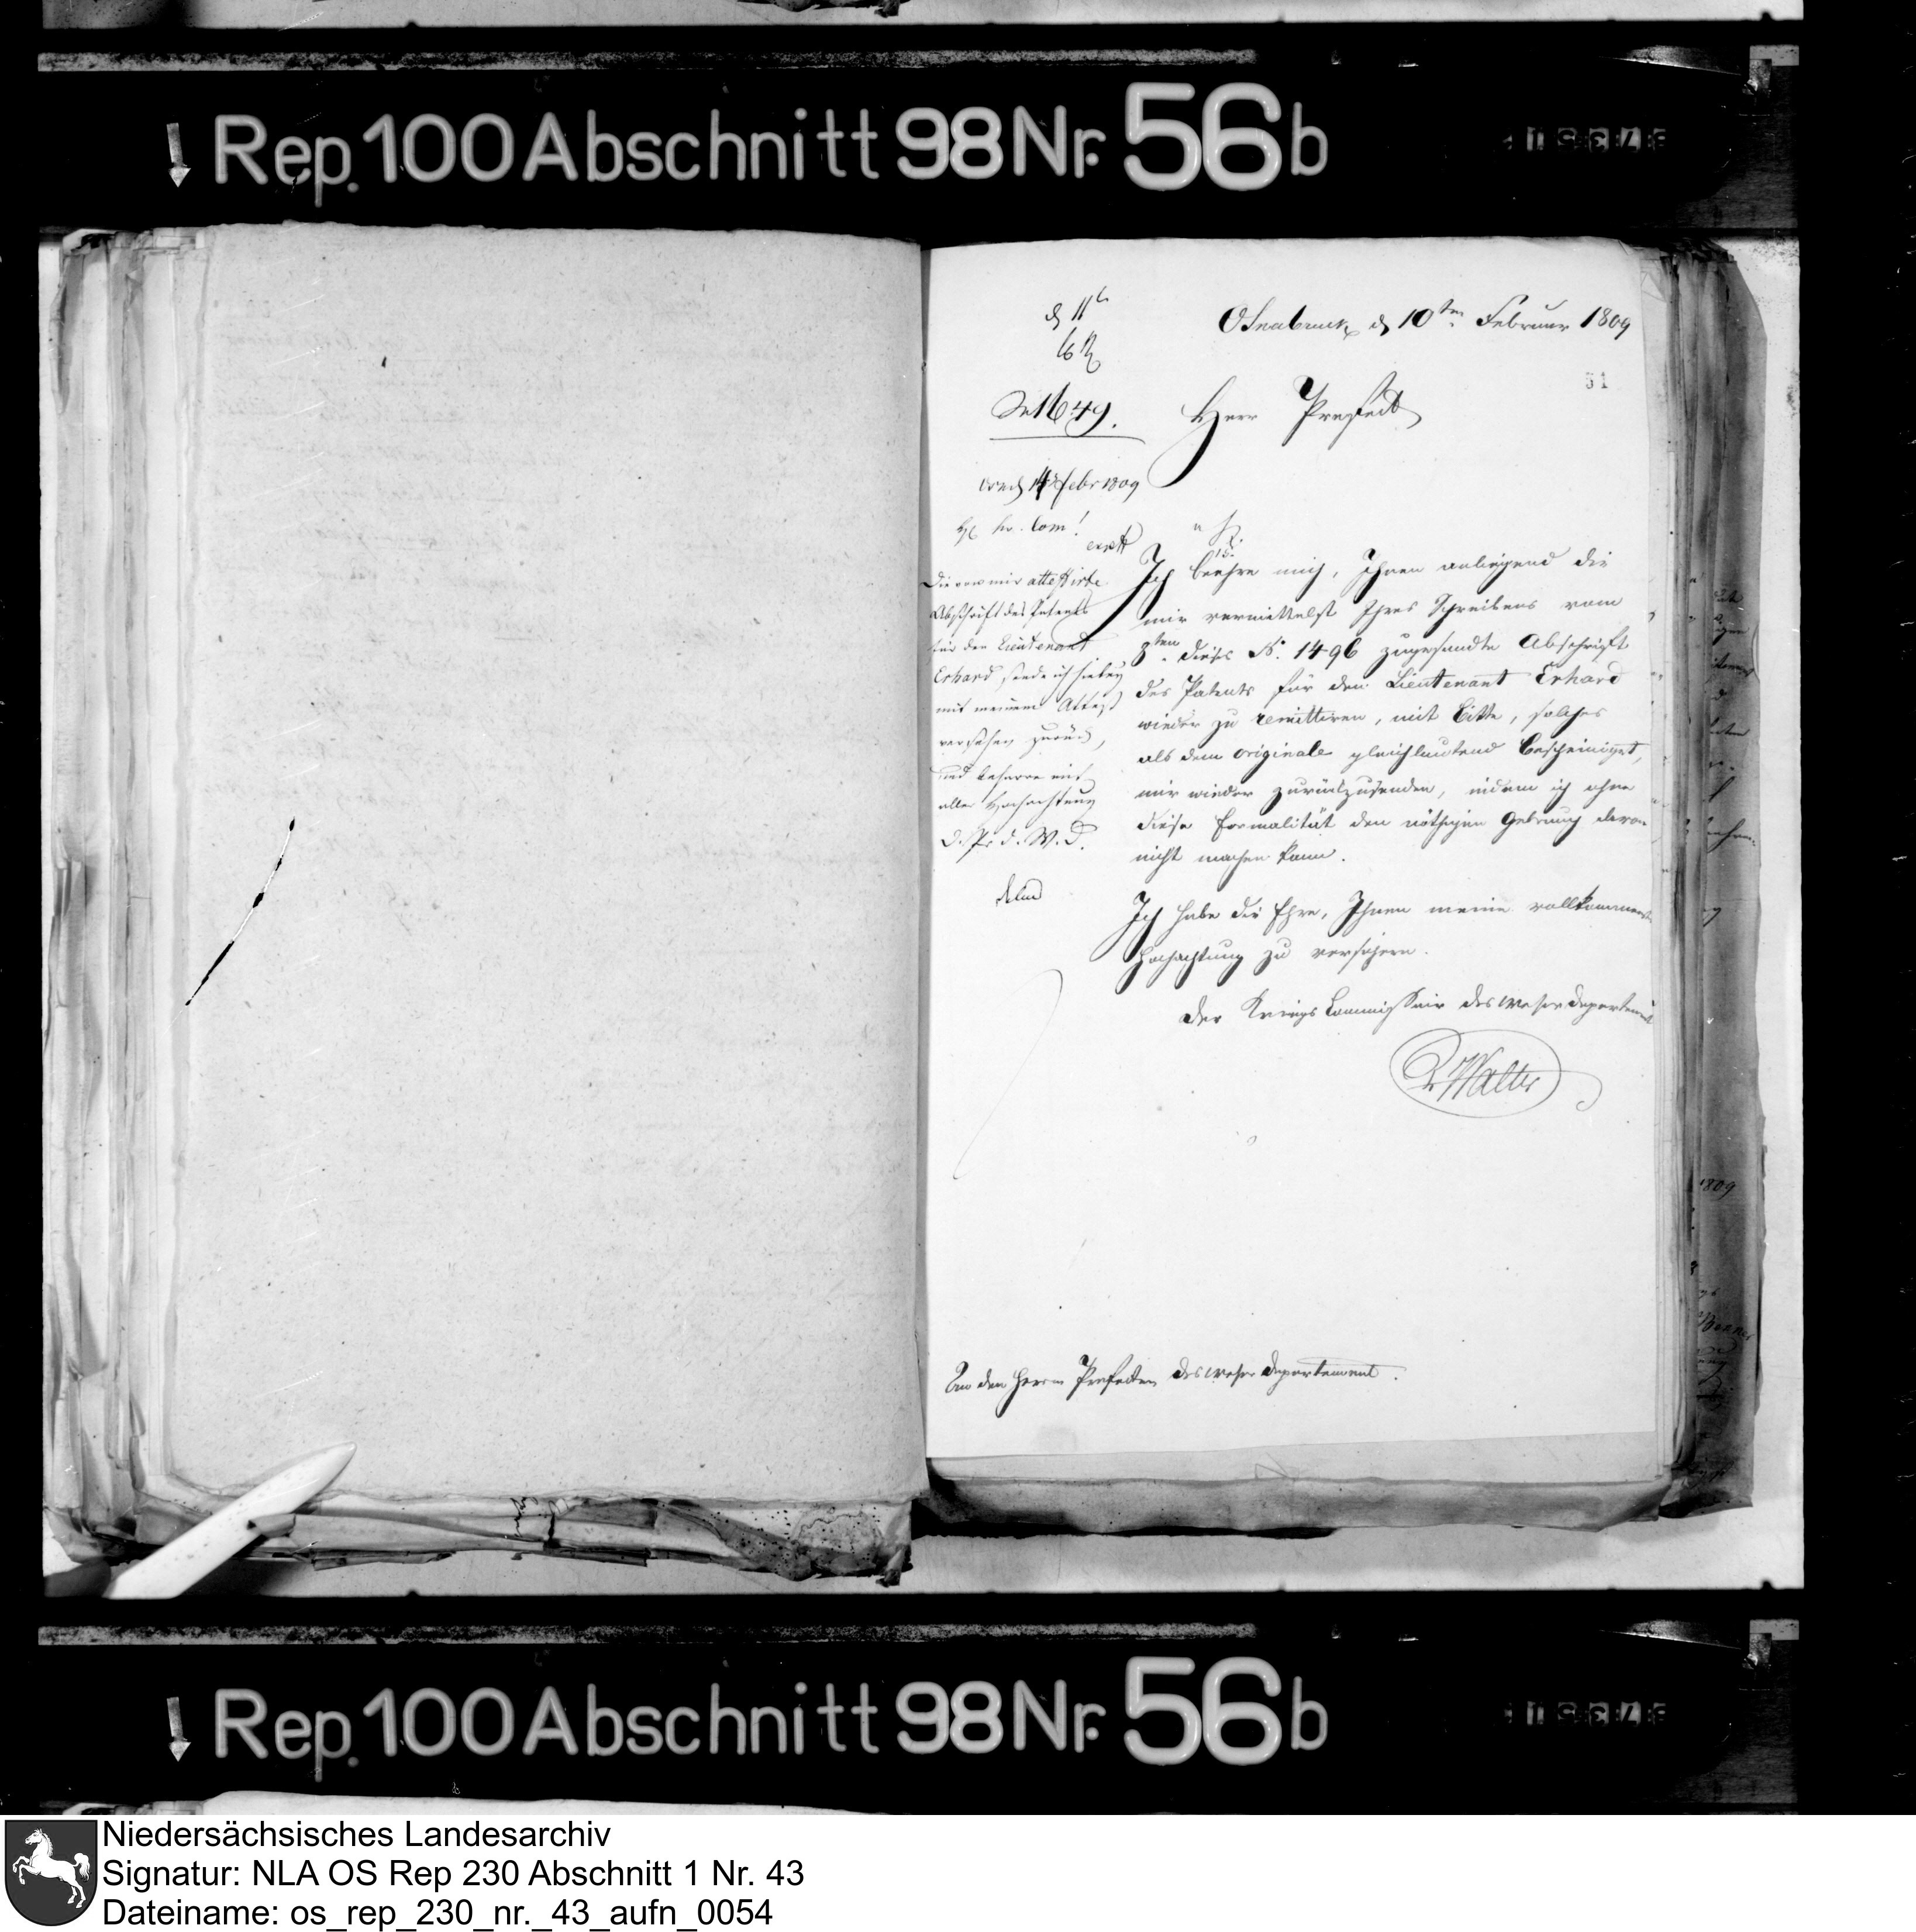 ↓ Rep. 100 Abschnitt 98 Nr. 56 b
Osnabruck d 10ten Februar 1809
51
d 11t
No 1649.
Herr Prefect
14 Febr 1809
Com!
Ich beehre mich, Ihnen anliegend die
mir vermittelst Ihres Schreibens vom
8ten. dieses N. 1496 zugesandte Abschrift
des Patents für den Lieutenant Erhard
wieder zu remittiren, mit Bitte, solches
als dem originale gleichlautend bescheiniget,
mir wieder zurückzusenden, indem ich ohne
diese Formalität den nöthigen Gebrauch davon
nicht machen kann.
Ich habe die Ehre, Ihnen meine vollkommenste
Hochachtung zu versichern.
Der Kriegs Commissair des Weser Departement
Walter
Die von mir attestirte
Abschrift des Patents
für den Lieutenant
Erhard sende ich hiebey
mit meinem Attest
versehen zurück,
und beharre mit
aller Hochachtung
D. Pr. d. W. D.
An den Herrn Prefecten des Weser Departement.
1809
↓ Rep. 100 Abschnitt 98 Nr. 56 b
Niedersächsisches Landesarchiv
Signatur: NLA OS Rep 230 Abschnitt 1 Nr. 43
Dateiname: os_rep_230_nr._43_aufn_0054